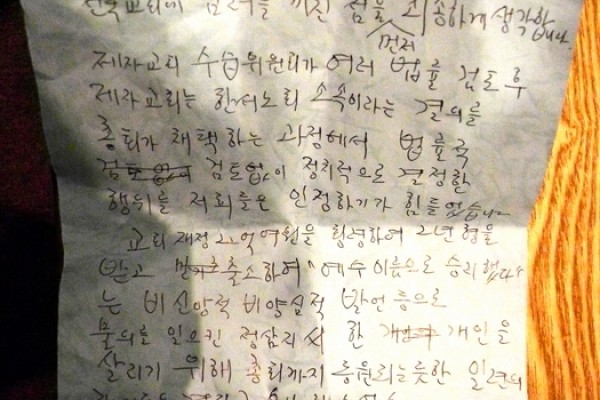 전국교회에 심려를 끼친 점을 먼저 죄송하게 생각합니다.
제자교회 수습위원회가 여러 법률 검토 후
제자교회는 한서노회 소속이라는 결의를
총회가 채택하는 과정에서 법률적
검토없이 정치적으로 결정한
행위를 저희들은 인정하기가 힘들었습니다
교회재정 21억여원을 횡령하여 2년형을
받고 출소하여 "예수 이름으로 승리했다"
는 비신앙적 비양심적 발언 등으로
물의를 일으킨 정삼지씨 한 개인을
살리기 위해 총회까지 동원되는듯한 일련의